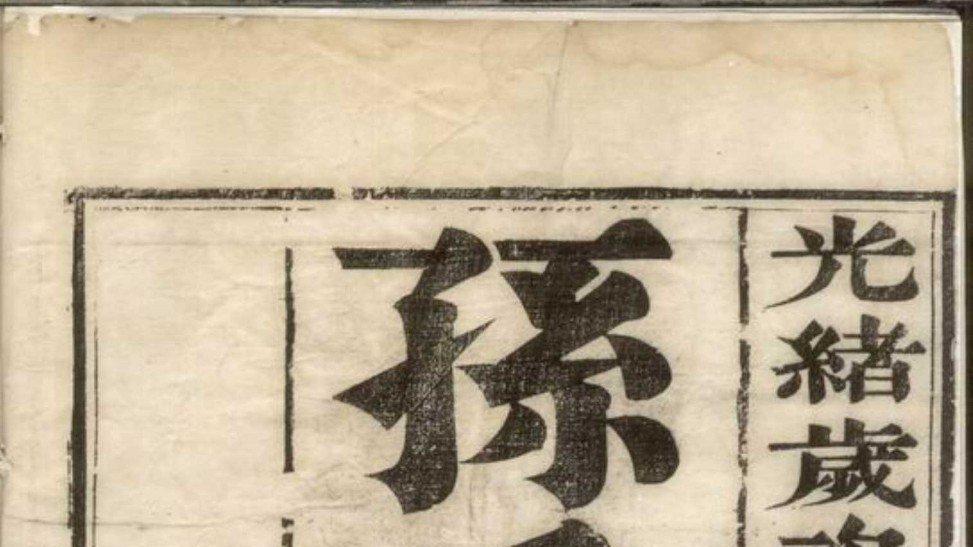 光緒歲
孫